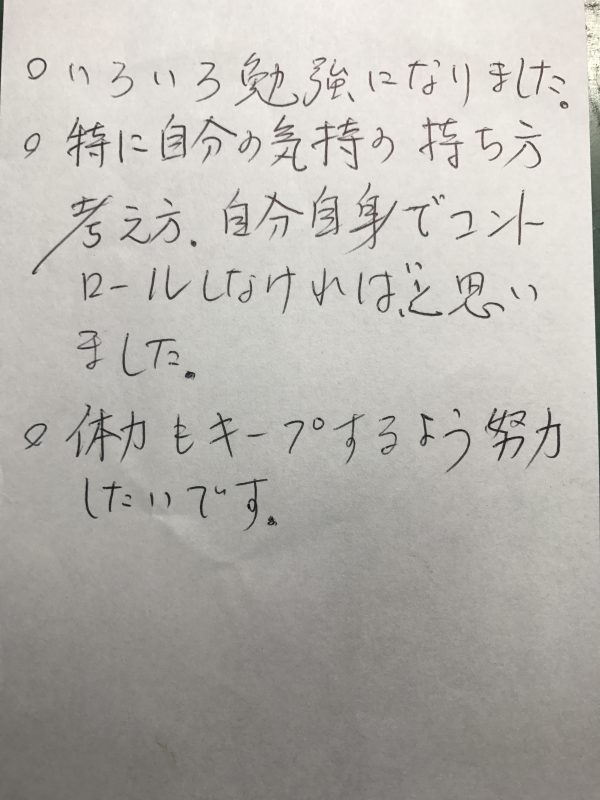 ○ いろいろ勉強になりました。
○ 特に自分の気持の持ち方
考え方.自分自身でコント
ロールしなければ、と思い
ました。
○ 体力もキープするよう努力
したいです。